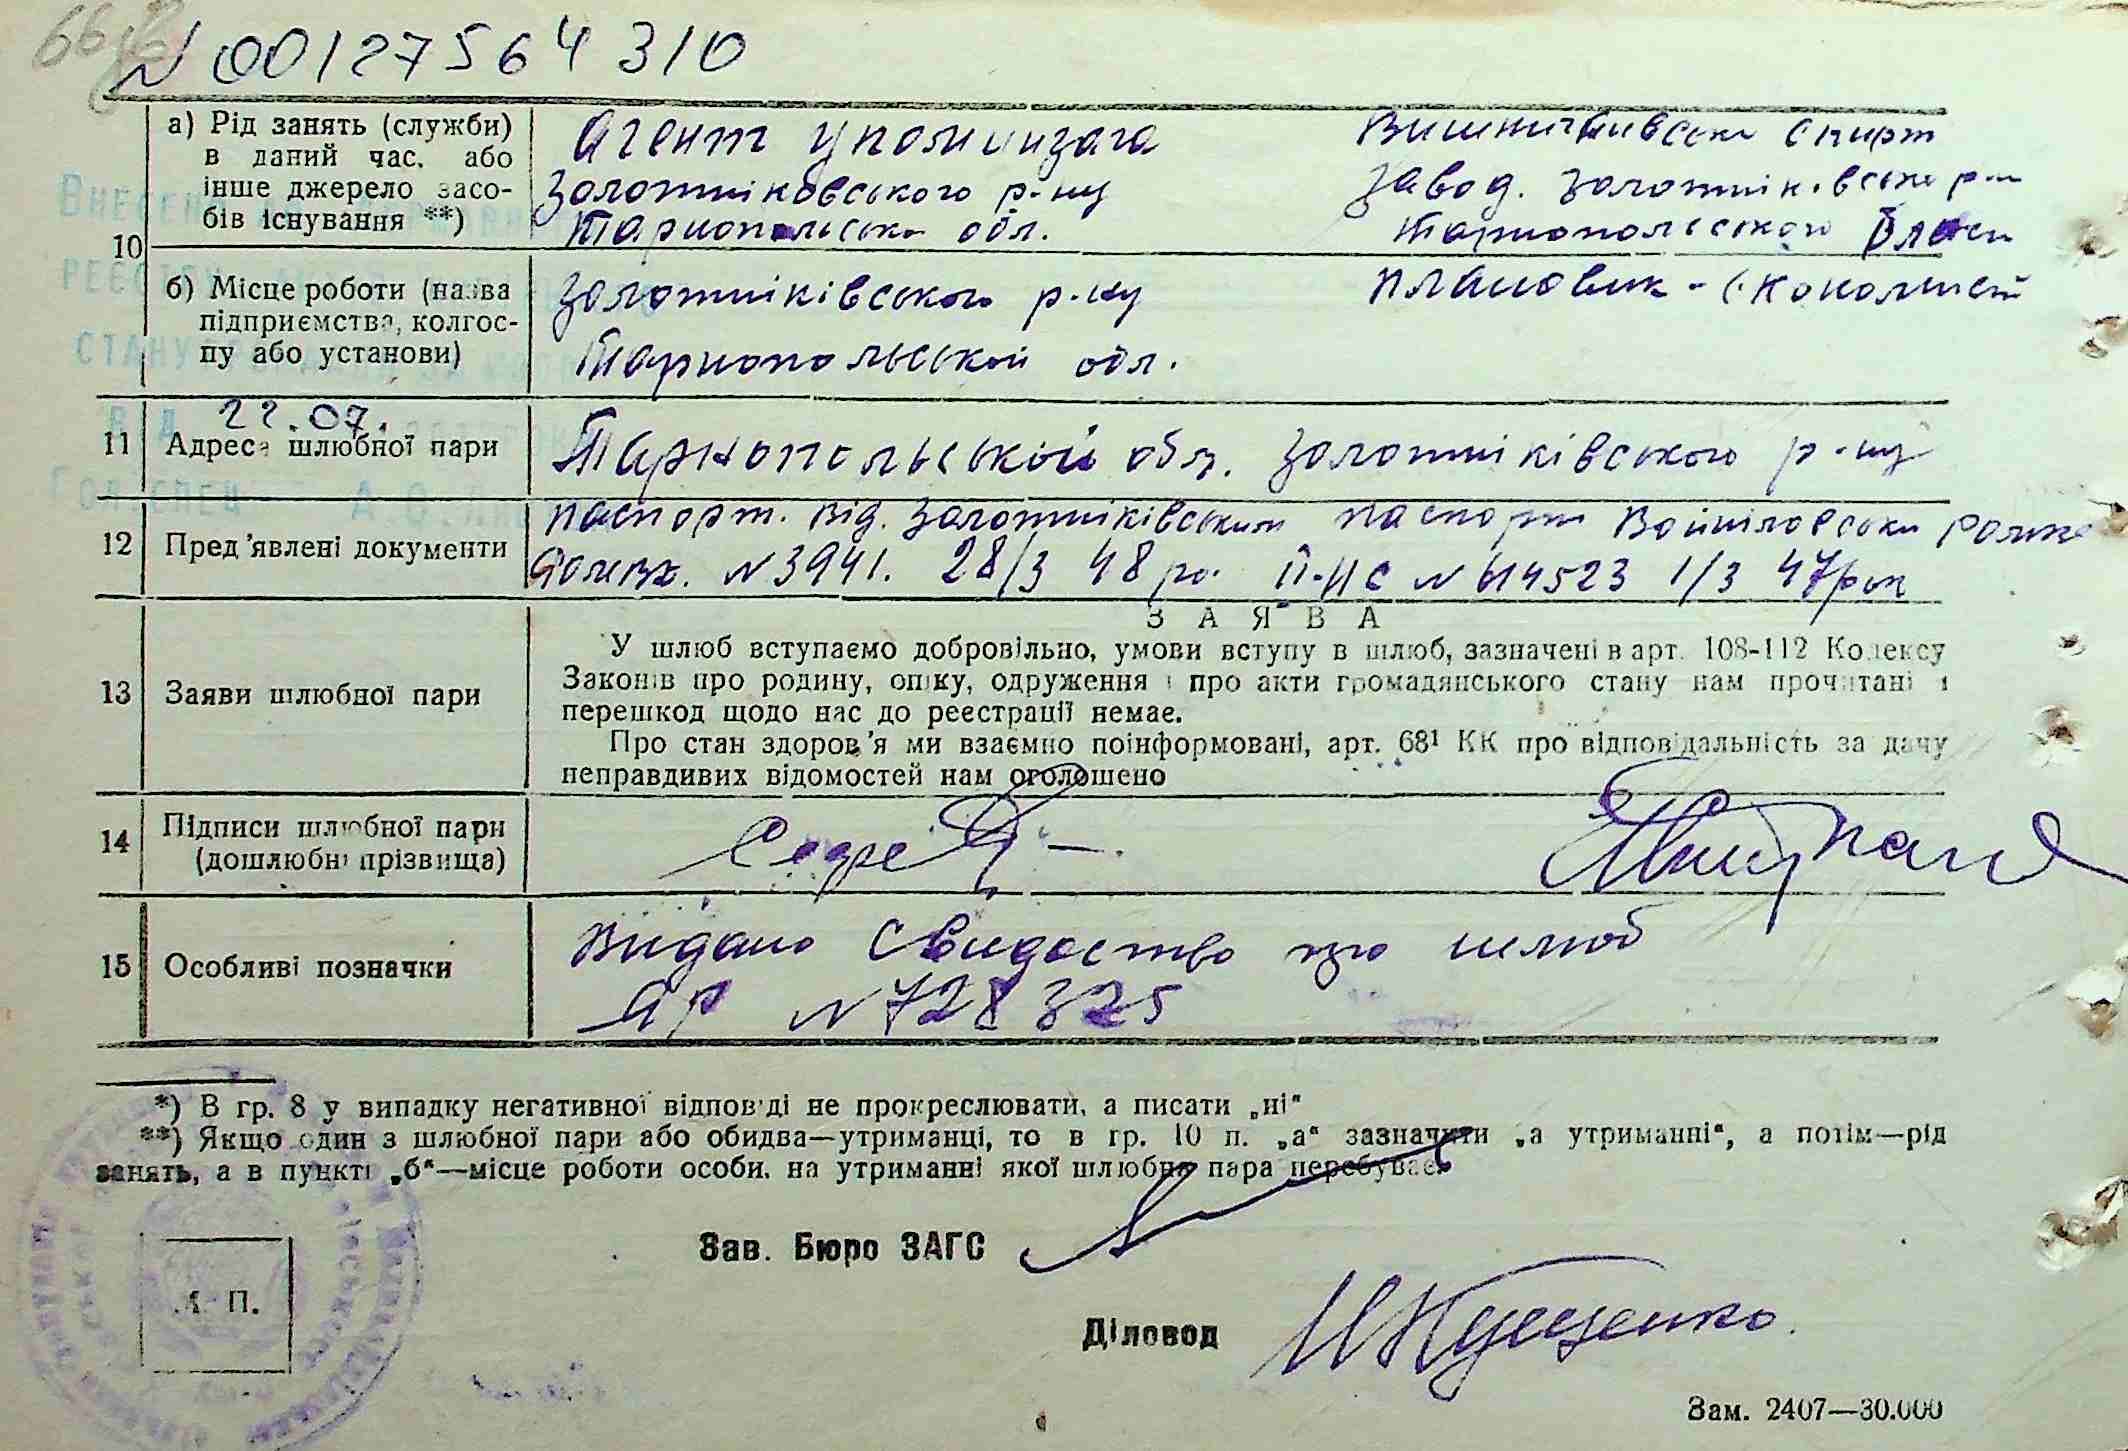 N 00127564310
а) Рід занять (служби) в даний час, або інше джерело засобів існування **)
Агент уполминзага
Золотниківського р-ну
Тарнопольська обл.
Вишнивчивський спирт
завод. Золотниківський р-н
Тарнопольського
10
б) Місце роботи (назва підприємства, колгоспу або установи)
Золотниківського р-ну
Тарнопольской обл.
плановик-економист
22.07.
11 Адреса шлюбної пари
Тарнопольской обл. Золотниківського р-ну
12 Пред'явлені документи
паспорт. від. Золотниківським
N3941. 28/3 48 ро.
паспорт
II-ПС N 614523 1/3 47 рок
ЗАЯВА
13 Заяви шлюбної пари
У шлюб вступаємо добровільно, умови вступу в шлюб, зазначені в арт. 108-112 Кодексу
Законів про родину, опіку, одруження і про акти громадянського стану нам прочитані і
перешкод щодо нас до реєстрації немає.
Про стан здоров'я ми взаємно поінформовані, арт. 68¹ КК про відповідальність за дачу
неправдивих відомостей нам оголошено
14 Підписи шлюбної пари
(дошлюбні прізвища)
15 Особливі позначки
Видано Свидоство про шлюб
ЯР N 728325
*) В гр. 8 у випадку негативної відповіді не прокреслювати, а писати „ні“
**) Якщо один з шлюбної пари або обидва—утриманці, то в гр. 10 п. „а“ зазначити „а утриманні“, а потім—рід
занять, а в пункті „б“—місце роботи особи, на утриманні якої шлюбна пара перебуває.
Зав. Бюро ЗАГС
М. П.
Діловод
Зам. 2407—30.000